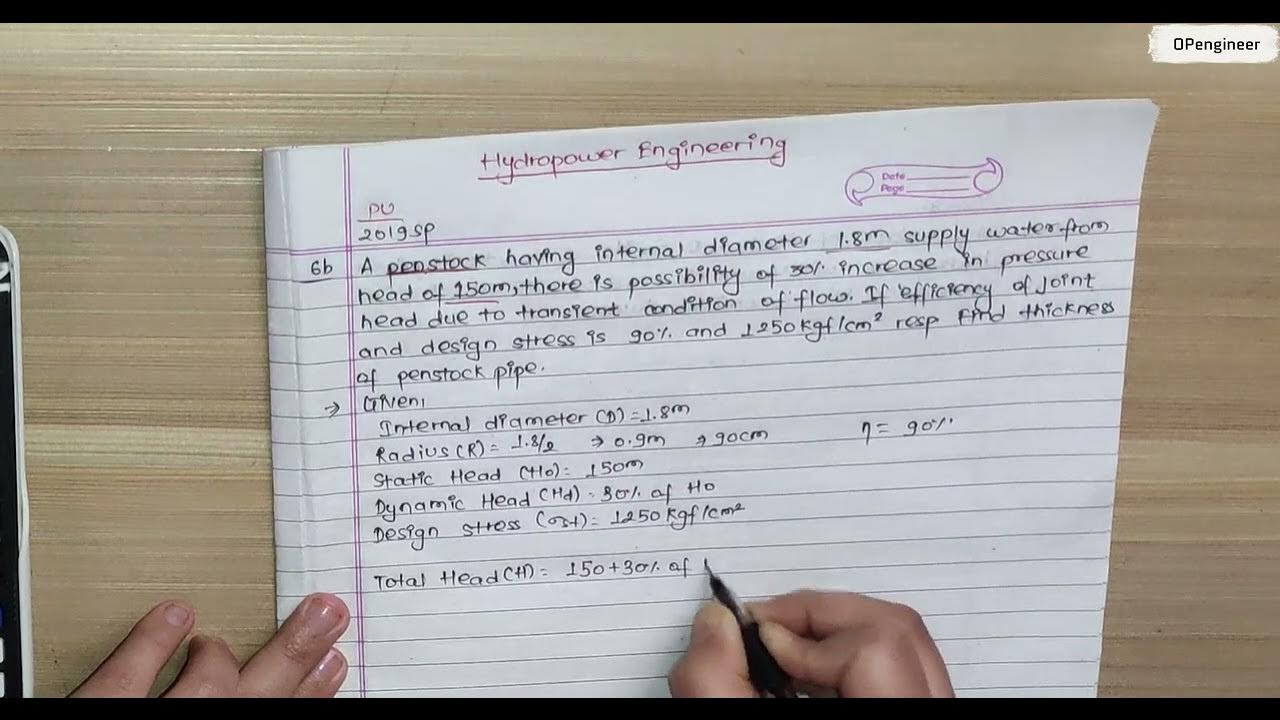 OPengineer
Hydropower Engineering
Date
Page
PU
2019 SP
6b A penstock having internal diameter 1.8m supply water from
head of 150m, there is possibility of 30% increase in pressure
head due to transient condition of flow. If efficiency of joint
and design stress is 90% and 1250kgf/cm² resp find thickness
of penstock pipe.
→ Given,
Internal diameter (D) = 1.8m
Radius (R) = 1.8/2 → 0.9m → 90cm η = 90%
Static Head (Ho) = 150m
Dynamic Head (Hd) = 30% of Ho
Design stress (σst) = 1250 kgf/cm²
Total Head (H) = 150+30% of